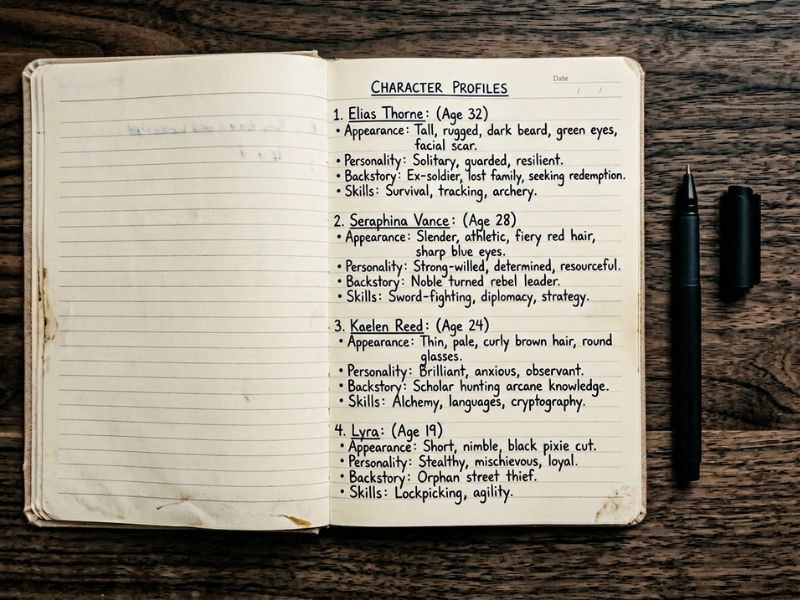 Date
/ /
CHARACTER PROFILES
1. Elias Thorne: (Age 32)
• Appearance: Tall, rugged, dark beard, green eyes,
facial scar.
• Personality: Solitary, guarded, resilient.
• Backstory: Ex-soldier, lost family, seeking redemption.
• Skills: Survival, tracking, archery.
2. Seraphina Vance: (Age 28)
• Appearance: Slender, athletic, fiery red hair,
sharp blue eyes.
• Personality: Strong-willed, determined, resourceful.
• Backstory: Noble turned rebel leader.
• Skills: Sword-fighting, diplomacy, strategy.
3. Kaelen Reed: (Age 24)
• Appearance: Thin, pale, curly brown hair, round
glasses.
• Personality: Brilliant, anxious, observant.
• Backstory: Scholar hunting arcane knowledge.
• Skills: Alchemy, languages, cryptography.
4. Lyra: (Age 19)
• Appearance: Short, nimble, black pixie cut.
• Personality: Stealthy, mischievous, loyal.
• Backstory: Orphan street thief.
• Skills: Lockpicking, agility.